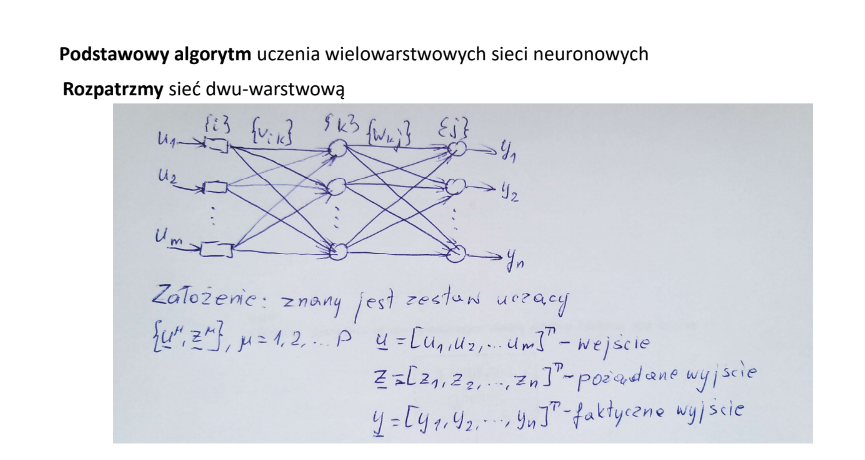 Podstawowy algorytm uczenia wielowarstwowych sieci neuronowych
Rozpatrzmy sieć dwu-warstwową
{i} {v_ik} {k} {w_kj} {j}
u_1 y_1
u_2 y_2
⋮ ⋮ ⋮
u_m y_n
Założenie: znany jest zestaw uczący
{u^μ, z^μ}, μ = 1, 2, ... P u = [u_1, u_2, ... u_m]^T - wejście
z = [z_1, z_2, ..., z_n]^T - pożądane wyjście
y = [y_1, y_2, ..., y_n]^T - faktyczne wyjście